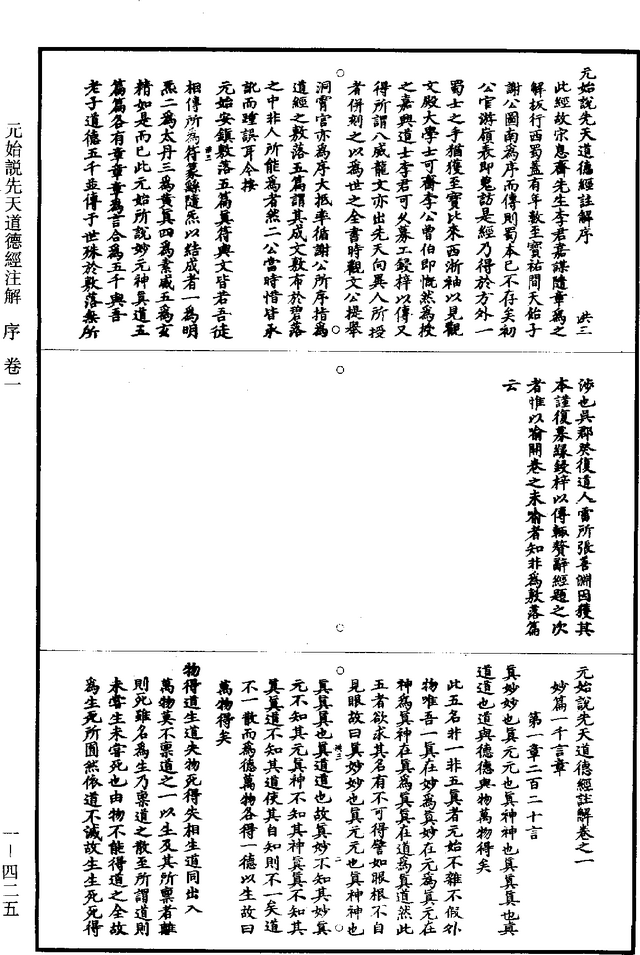 元始說先天道德經註解序　洪三
此經故宗息齋先生李君嘉謀隨章為之
解板行西蜀蓋有年數至寶祐間天飴子
謝公圖南為序而傳則蜀本已不存矣初
公官游嶺表即鬼訪是經乃得於方外一
蜀士之手猶獲至寶比來西浙袖以見觀
文殿大學士可齋李公曾伯即慨然為授
之嘉興道士李君可久募工鋟梓以傳又
得所謂八威龍文亦出先天向異人所授
者併刻之以為世之全書時觀文公提舉
洞霄宮亦為序大抵率循謝公所序指為
道經之敷落五篇謂其成文敷布於碧落
之中非人所能為者然二公當時惜皆承
訛而踵誤耳今按
元始安鎮敷落五篇真符與文皆若吾徒
相傳所為符篆繇隨炁以結成者一為明
炁二為太丹三為黃真四為素威五為玄
精如是而已此元始所說妙元神真道五
篇篇各有章章章為言合為五千與吾
老子道德五千並傳于世殊於敷落無所
涉也吳郡癸復道人雷所張善淵因獲其
本謹復募緣鋟梓以傳輒贅辭經題之次
者惟以喻開卷之未喻者知非為敷落篇
云
元始說先天道德經註解卷之一
妙篇一千言章
第一章二百二十言
真妙妙也真元元也真神神也真真真也真
道道也道與德德與物萬物得矣
此五名非一非五真者元始不雜不假外
物唯吾一真在妙為真妙在元為真元在
神為真神在真為真真在道為真道然此
五者欲求其名有不可得譬如眼根不自
見眼故曰真妙妙也真元元也真神神也
真真真也真道道也故真妙不知其妙真
元不知其元真神不知其神真真不知其
真真道不知其道使其自知則不一矣道
不一散而為德萬物各得一德以生故曰
萬物得矣
物得道生道失物死得失相生道同出入
萬物莫不稟道之一以生及其所稟者離
則死雖名為生乃稟道之散至所謂道則
未嘗生未嘗死也由物不能得道之全故
為生死所囿然依道不滅故生生死死得
元始說先天道德經注解　序　卷一
一－四二五